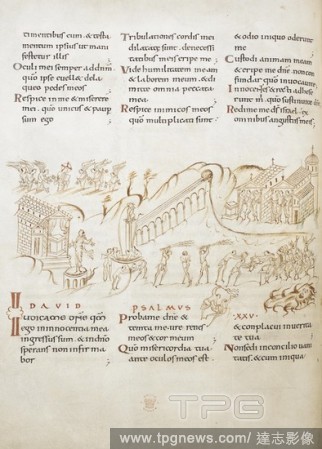 timentibus eum · & testa
mentum ipsius ut mani
festetur illis
Oculi mei semper ad dnm
quo ipse euellet de la
queo pedes meos
Respice in me & miserere
mei quia unicus & paup
sum ego
Tribulationes cordis mei
dilatatae sunt de necessi
tatibus meis eripe me
Vide humilitatem meam
& laborem meum & di
mitte omnia peccata
mea
Respice inimicos meos
multiplicati sunt
& odio iniquo oderunt
me
Custodi animam meam
& eripe me dne non con
fundar
Innocentes & recti adhese
runt
Redime me ds
omnibus angustiis meis
DAVID
PSALMUS
XXV
Iudica me
ego in innocentia mea
ingressus sum & in dno
sperans non infirma
bor
Proba me dne &
tempta me ure renes
meos & cor meum
Quo misericordia tua
ante oculos meos est
& conplacui in uerita
te tua
Non sedi in concilio uani
tatis & cum iniqua
TPG
www.tpgnews.com / 達志影像